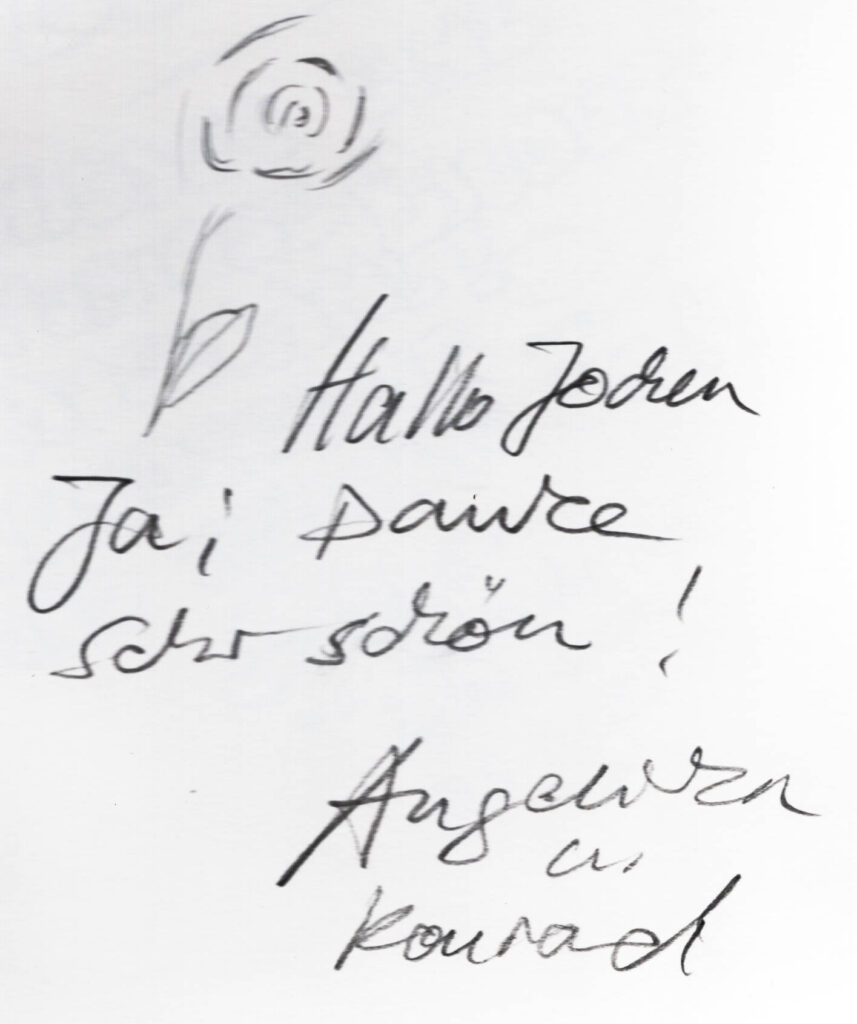 Hallo Jochen
Ja, Danke
sehr schön!
Angelika
u.
Konrad